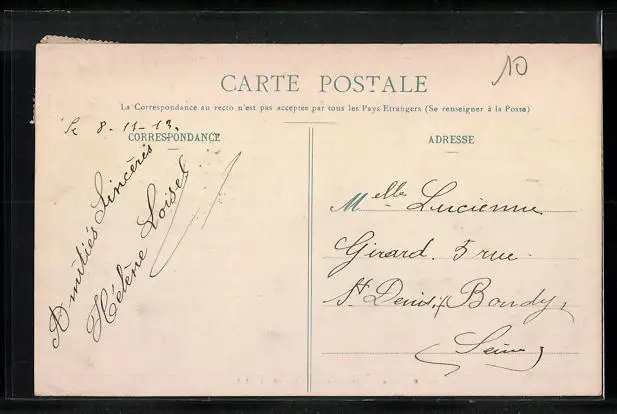 10
CARTE POSTALE
La Correspondance au recto n'est pas acceptée par tous les Pays Etrangers (Se renseigner à la Poste)
Le 8-11-13.
CORRESPONDANCE
ADRESSE
Amitiés Sincères
Hélène Loisel
Melle Lucienne
Girard. 5 rue
St Denis, Bondy,
(Seine)